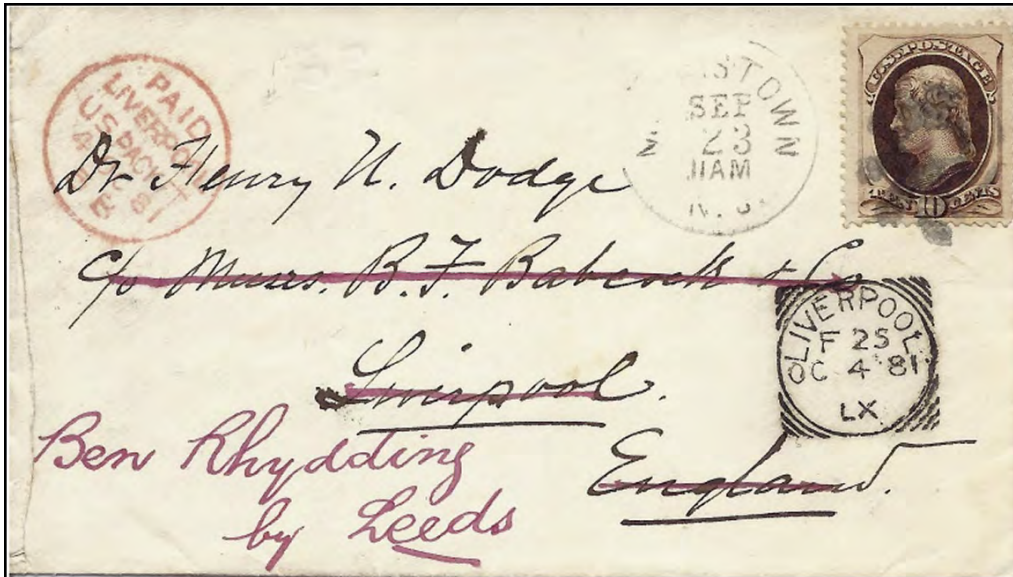 PAID
LIVERPOOL
US PACKET
4 OC 81
SEP
23
11AM
N. J.
U.S. POSTAGE
TEN 10 CENTS
Dr Henry N. Dodge
c/o Messrs. B. F. Babcock & Co
Liverpool.
England.
LIVERPOOL
F 25
OC 4 81
LX
Ben Rhydding
by Leeds